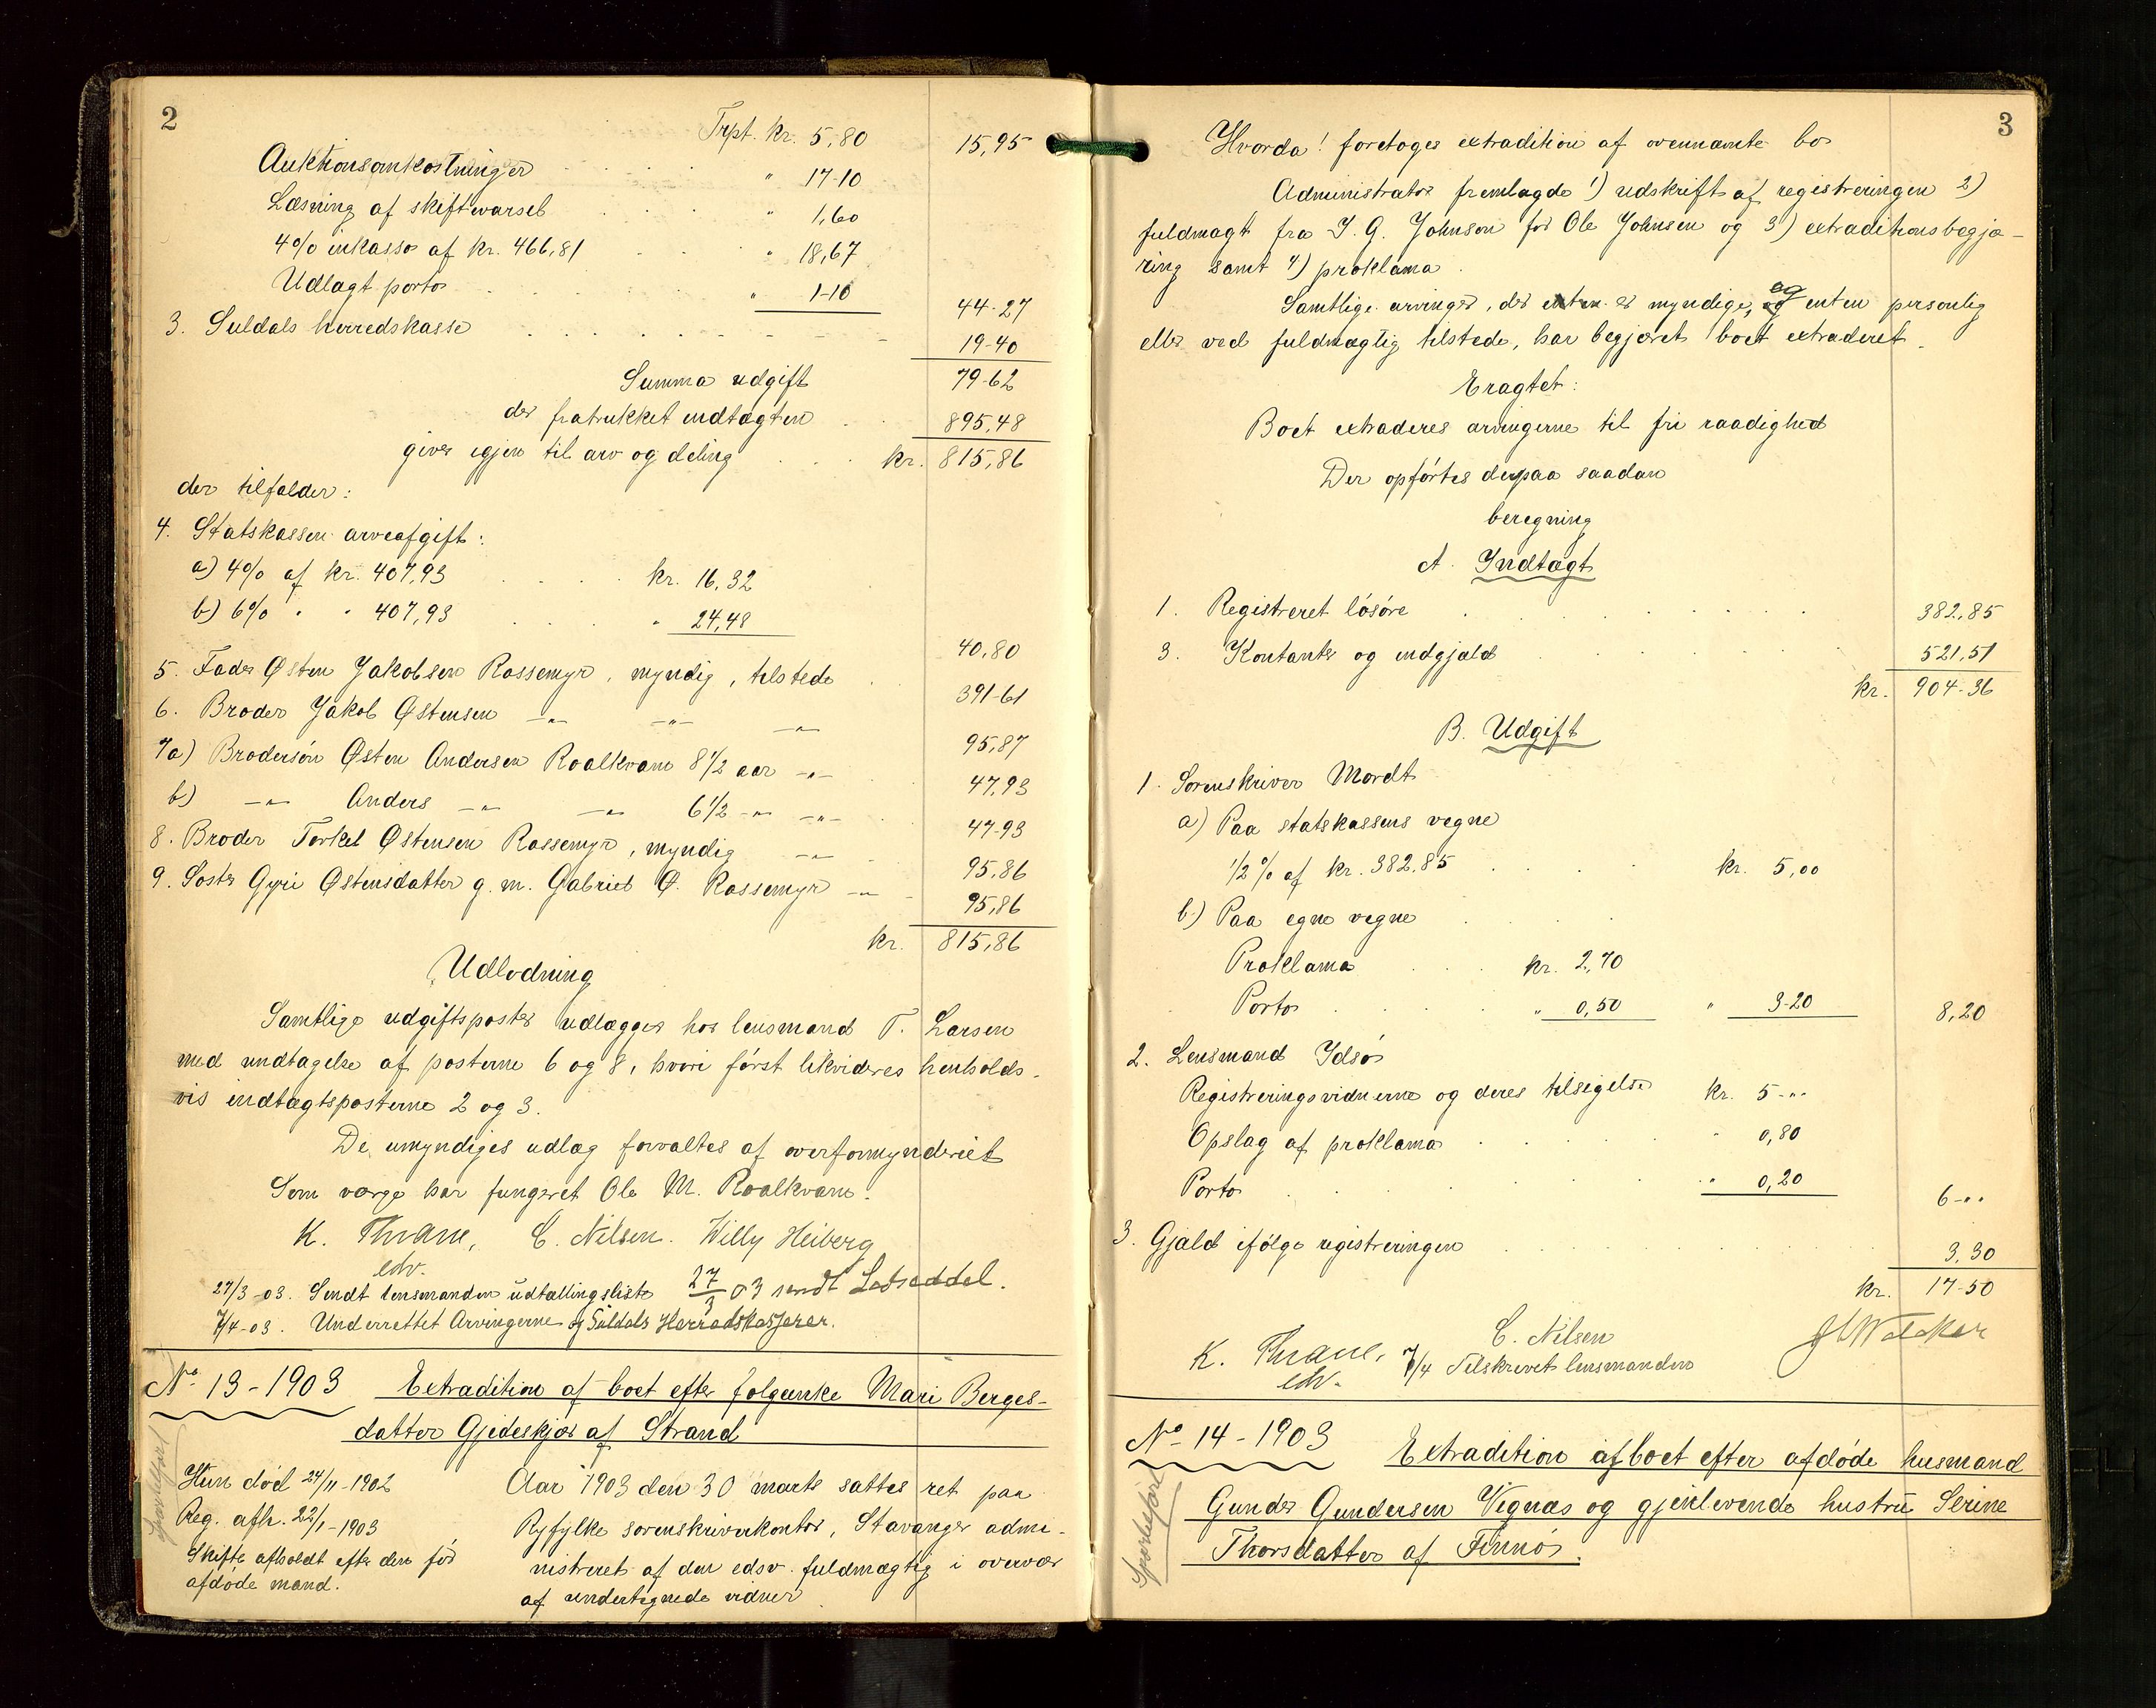 2
Trpt. kr. 5,80 15,95
Auktionsomkostninger " 17-10
Læsning af skiftevarsel " 1,60
4% inkasso af kr. 466,81 " 18,67
Udlagt porto " 1-10 44-27
3. Suldals herredskasse 19-40
Summa udgift 79-62
der fratrukket indtægten 895,48
giver igjen til arv og deling kr. 815,86
der tilfalder:
4. Statskassen arveafgift:
a) 4% af kr. 407,93 kr. 16,32
b) 6% " " 407,93 " 24,48 40,80
5. Fader Østen Jakobsen Rossemyr, myndig, tilstede 391-61
6. Broder Jakob Østensen -"- -"- -"- 95,87
7a) Brodersøn Østen Andersen Roalkvam 8 1/2 aar -"- 47,93
b) -"- Anders -"- -"- 6 1/2 -"- -"- 47-93
8. Broder Torkel Østensen Rossemyr, myndig -"- 95,86
9. Søster Gyri Østensdatter g. m. Gabriel Ø. Rossemyr -"- 95,86
kr. 815,86
Udlodning
Samtlige udgiftsposter udlægges hos lensmand T. Larsen
med undtagelse af posterne 6 og 8, hvori først likvideres henholds-
vis indtægtsposterne 2 og 3.
De umyndiges udlæg forvaltes af overformynderiet
Som værge har fungeret Ole M. Roalkvam.
K. Thrane, C. Nilsen. Willy Heiberg
edv.
27/3-03. Sendt lensmanden udtællingsliste 27/3 03 sendt Lodseddel.
7/4-03. Underrettet Arvingerne og Suldals Herredskasserer.
No 13-1903 Extradition af boet efter folgeenke Mari Berges-
datter Gjedeskjær af Strand
Hun død 24/11-1902
Reg. afh. 22/1-1903
Skifte afholdt efter den før
afdøde mand.
Aar 1903 den 30 marts sattes ret paa
Ryfylke sorenskriverkontor, Stavanger admi-
nistreret af den edsv. fuldmægtig i overvær
af undertegnede vidner
3
Hvorda! foretoges extradition af ovennævnte bo
Administrator fremlagde 1) udskrift af registreringen 2)
fuldmagt fra J. G. Johnson for Ole Johnsen og 3) extraditionsbegjæ-
ring samt 4) proklama.
Samtlige arvinger, der er myndige, og enten personlig
eller ved fuldmægtig tilstede, har begjæret boet extraderet.
Eragtet:
Boet extraderes arvingerne til fri raadighed
Der opførtes derpaa saadan
beregning
A. Indtægt
1. Registreret løsøre 382,85
3. Kontanter og indgjæld 521,51
kr. 904-36
B. Udgift
1. Sorenskriver Mordt
a) Paa statskassens vegne
1/2% af kr. 382,85 kr. 5,00
b) Paa egne vegne
Proklama kr. 2,70
Porto " 0,50 " 3-20 8,20
2. Lensmand Idsø
Registreringsvidnerne og deres tilsigelse kr. 5-"
Opslag af proklama " 0,80
Porto " 0,20 6-"
3. Gjæld ifølge registreringen 3,30
kr. 17-50
K. Thrane, C. Nilsen
edv. 7/4 Tilskrevet lensmanden
No 14-1903 Extradition af boet efter afdøde husmand
Gunder Gundersen Vignæs og gjenlevende hustru Serine
Thorsdatter af Finnø.